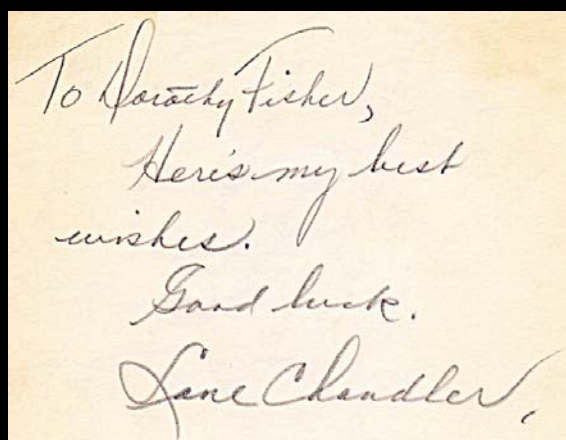 To Dorothy Fisher,
Here's my best
wishes.
Good luck.
Lane Chandler,